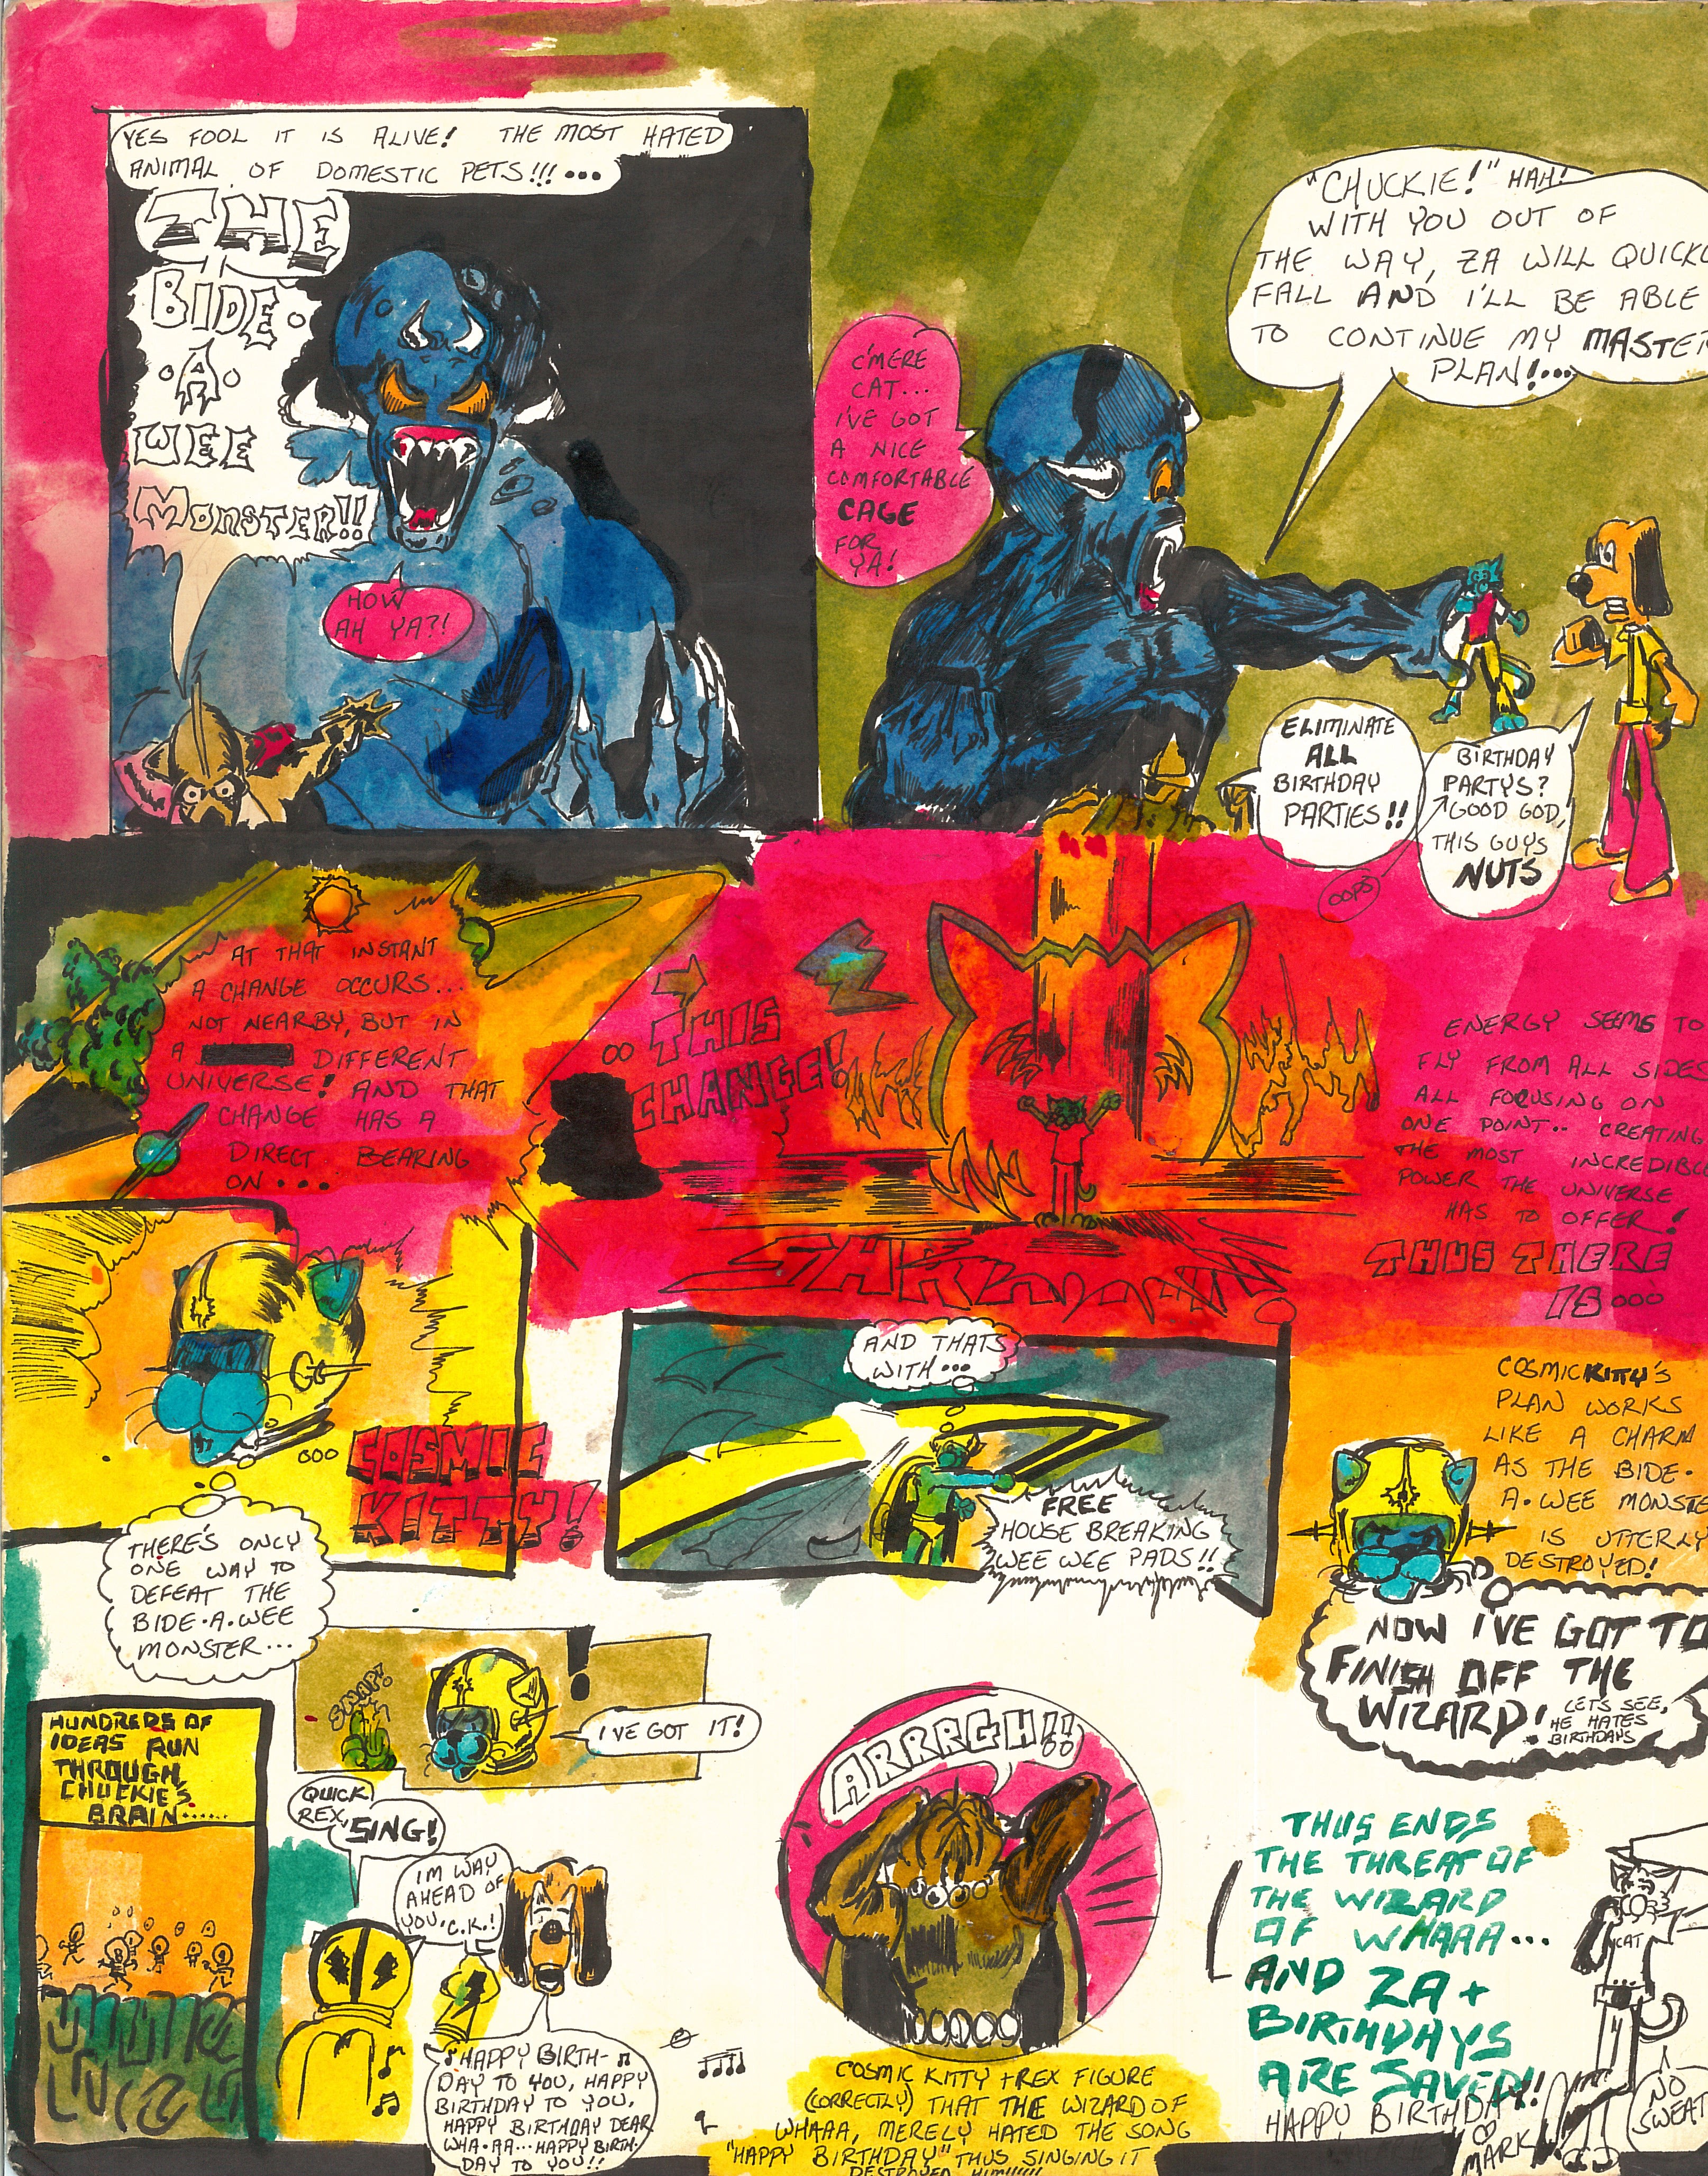 YES FOOL IT IS ALIVE! THE MOST HATED
ANIMAL OF DOMESTIC PETS!!!...
THE
BIDE.
.A.
WEE
MONSTER!!
HOW
AH YA?!
"CHUCKIE!" HAH!
WITH YOU OUT OF
THE WAY, ZA WILL QUICKL
FALL AND I'LL BE ABLE
TO CONTINUE MY MASTER
PLAN!...
C'MERE
CAT...
I'VE GOT
A NICE
COMFORTABLE
CAGE
FOR
YA!
ELIMINATE
ALL
BIRTHDAY
PARTIES!!
BIRTHDAY
PARTYS?
GOOD GOD,
THIS GUYS
NUTS
OOPS
AT THAT INSTANT
A CHANGE OCCURS...
NOT NEARBY, BUT IN
A DIFFERENT
UNIVERSE! AND THAT
CHANGE HAS A
DIRECT BEARING
ON...
THIS
CHANGE!
ENERGY SEEMS TO
FLY FROM ALL SIDES
ALL FOCUSING ON
ONE POINT.. CREATING
THE MOST INCREDIBLE
POWER THE UNIVERSE
HAS TO OFFER!
THUS THERE
IS...
...COSMIC
KITTY!
THERE'S ONLY
ONE WAY TO
DEFEAT THE
BIDE.A.WEE
MONSTER...
AND THATS
WITH...
FREE
HOUSE BREAKING
WEE WEE PADS!!
COSMIC KITTY'S
PLAN WORKS
LIKE A CHARM
AS THE BIDE.
A.WEE MONSTE
IS UTTERLY
DESTROYED!
NOW I'VE GOT TO
FINISH OFF THE
WIZARD!
LETS SEE,
HE HATES
BIRTHDAYS
HUNDREDS OF
IDEAS RUN
THROUGH
CHUCKIE'S
BRAIN......
SNAP!
!
I'VE GOT IT!
QUICK
REX,
SING!
IM WAY
AHEAD OF
YOU, C.K.!
HAPPY BIRTH-
DAY TO YOU, HAPPY
BIRTHDAY TO YOU,
HAPPY BIRTHDAY DEAR
WHA.AA...HAPPY BIRTH-
DAY TO YOU!!
ARRRGH!!
COSMIC KITTY + REX FIGURE
(CORRECTLY) THAT THE WIZARD OF
WHAAA, MERELY HATED THE SONG
"HAPPY BIRTHDAY" THUS SINGING IT
DESTROYED HIM!!!!!!
THUS ENDS
THE THREAT OF
THE WIZARD
OF WHAAA...
AND ZA +
BIRTHDAYS
ARE SAVED!
HAPPY BIRTHDAY!
MARK
CAT
NO
SWEAT